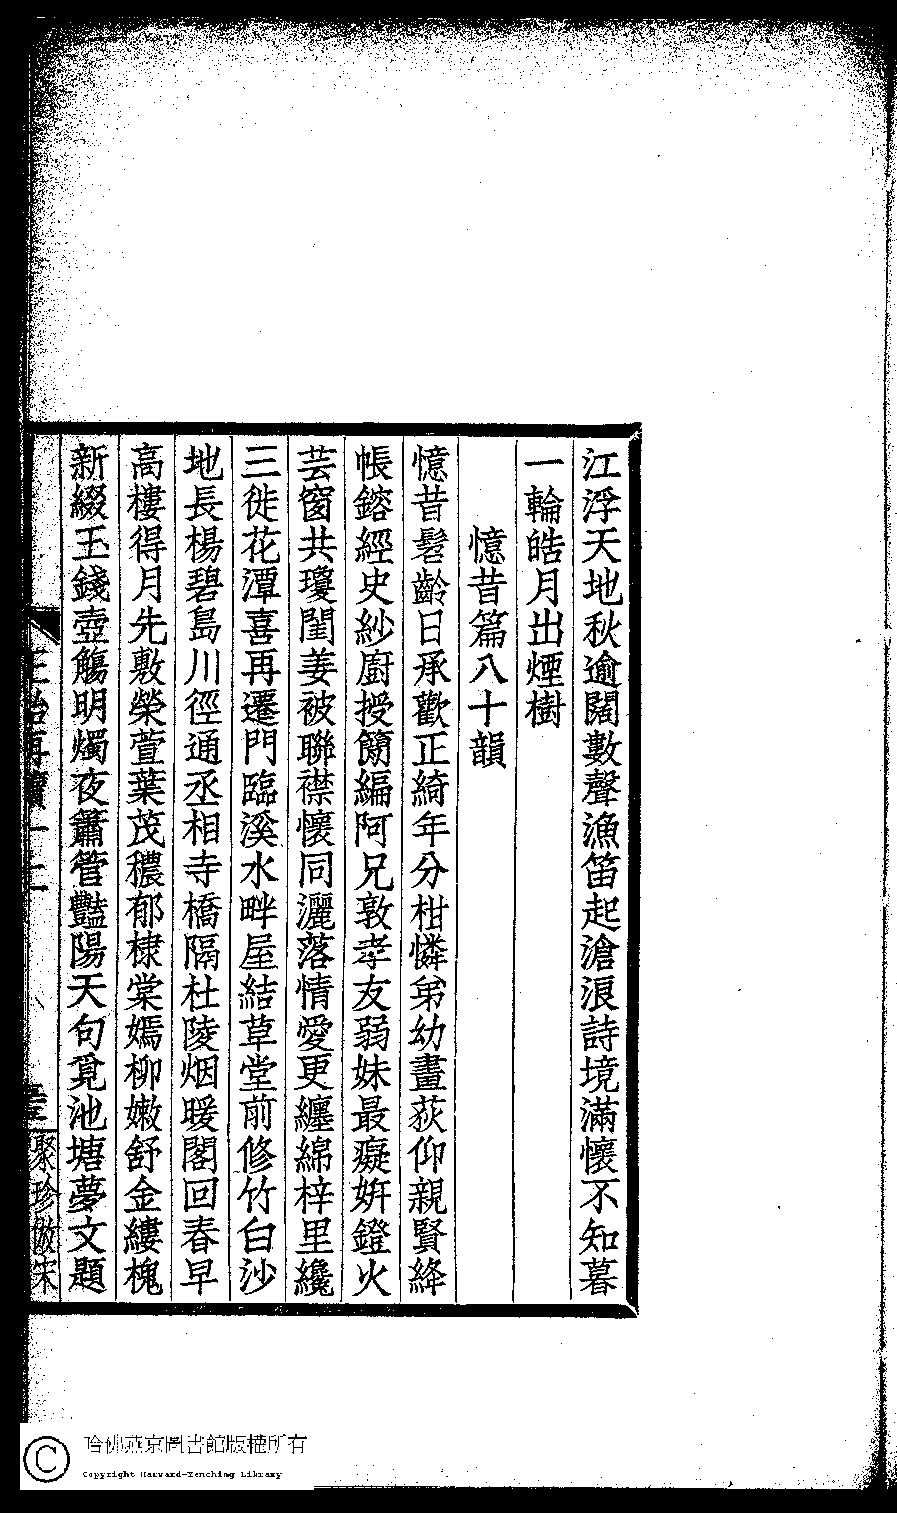 江浮天地秋逾闊數聲漁笛起滄浪詩境滿懷不知暮
一輪皓月出煙樹
憶昔篇八十韻
憶昔髫齡日承歡正綺年分柑憐弟幼畫荻仰親賢絳
帳鎔經史紗廚授簡編阿兄敦孝友弱妹最癡姸鐙火
芸窗共瓊閨姜被聯襟懷同灑落情愛更纏綿梓里纔
三徙花潭喜再遷門臨溪水畔屋結草堂前修竹白沙
地長楊碧島川徑通丞相寺橋隔杜陵烟暖閣回春早
高樓得月先敷榮萱葉茂穠郁棣棠嫣柳嫩舒金縷槐
新綴玉錢壺觴明燭夜簫管豔陽天句覓池塘夢文題
聚珍倣宋
哈佛燕京圖書館版權所有
Copyright Harvard-Yenching Library